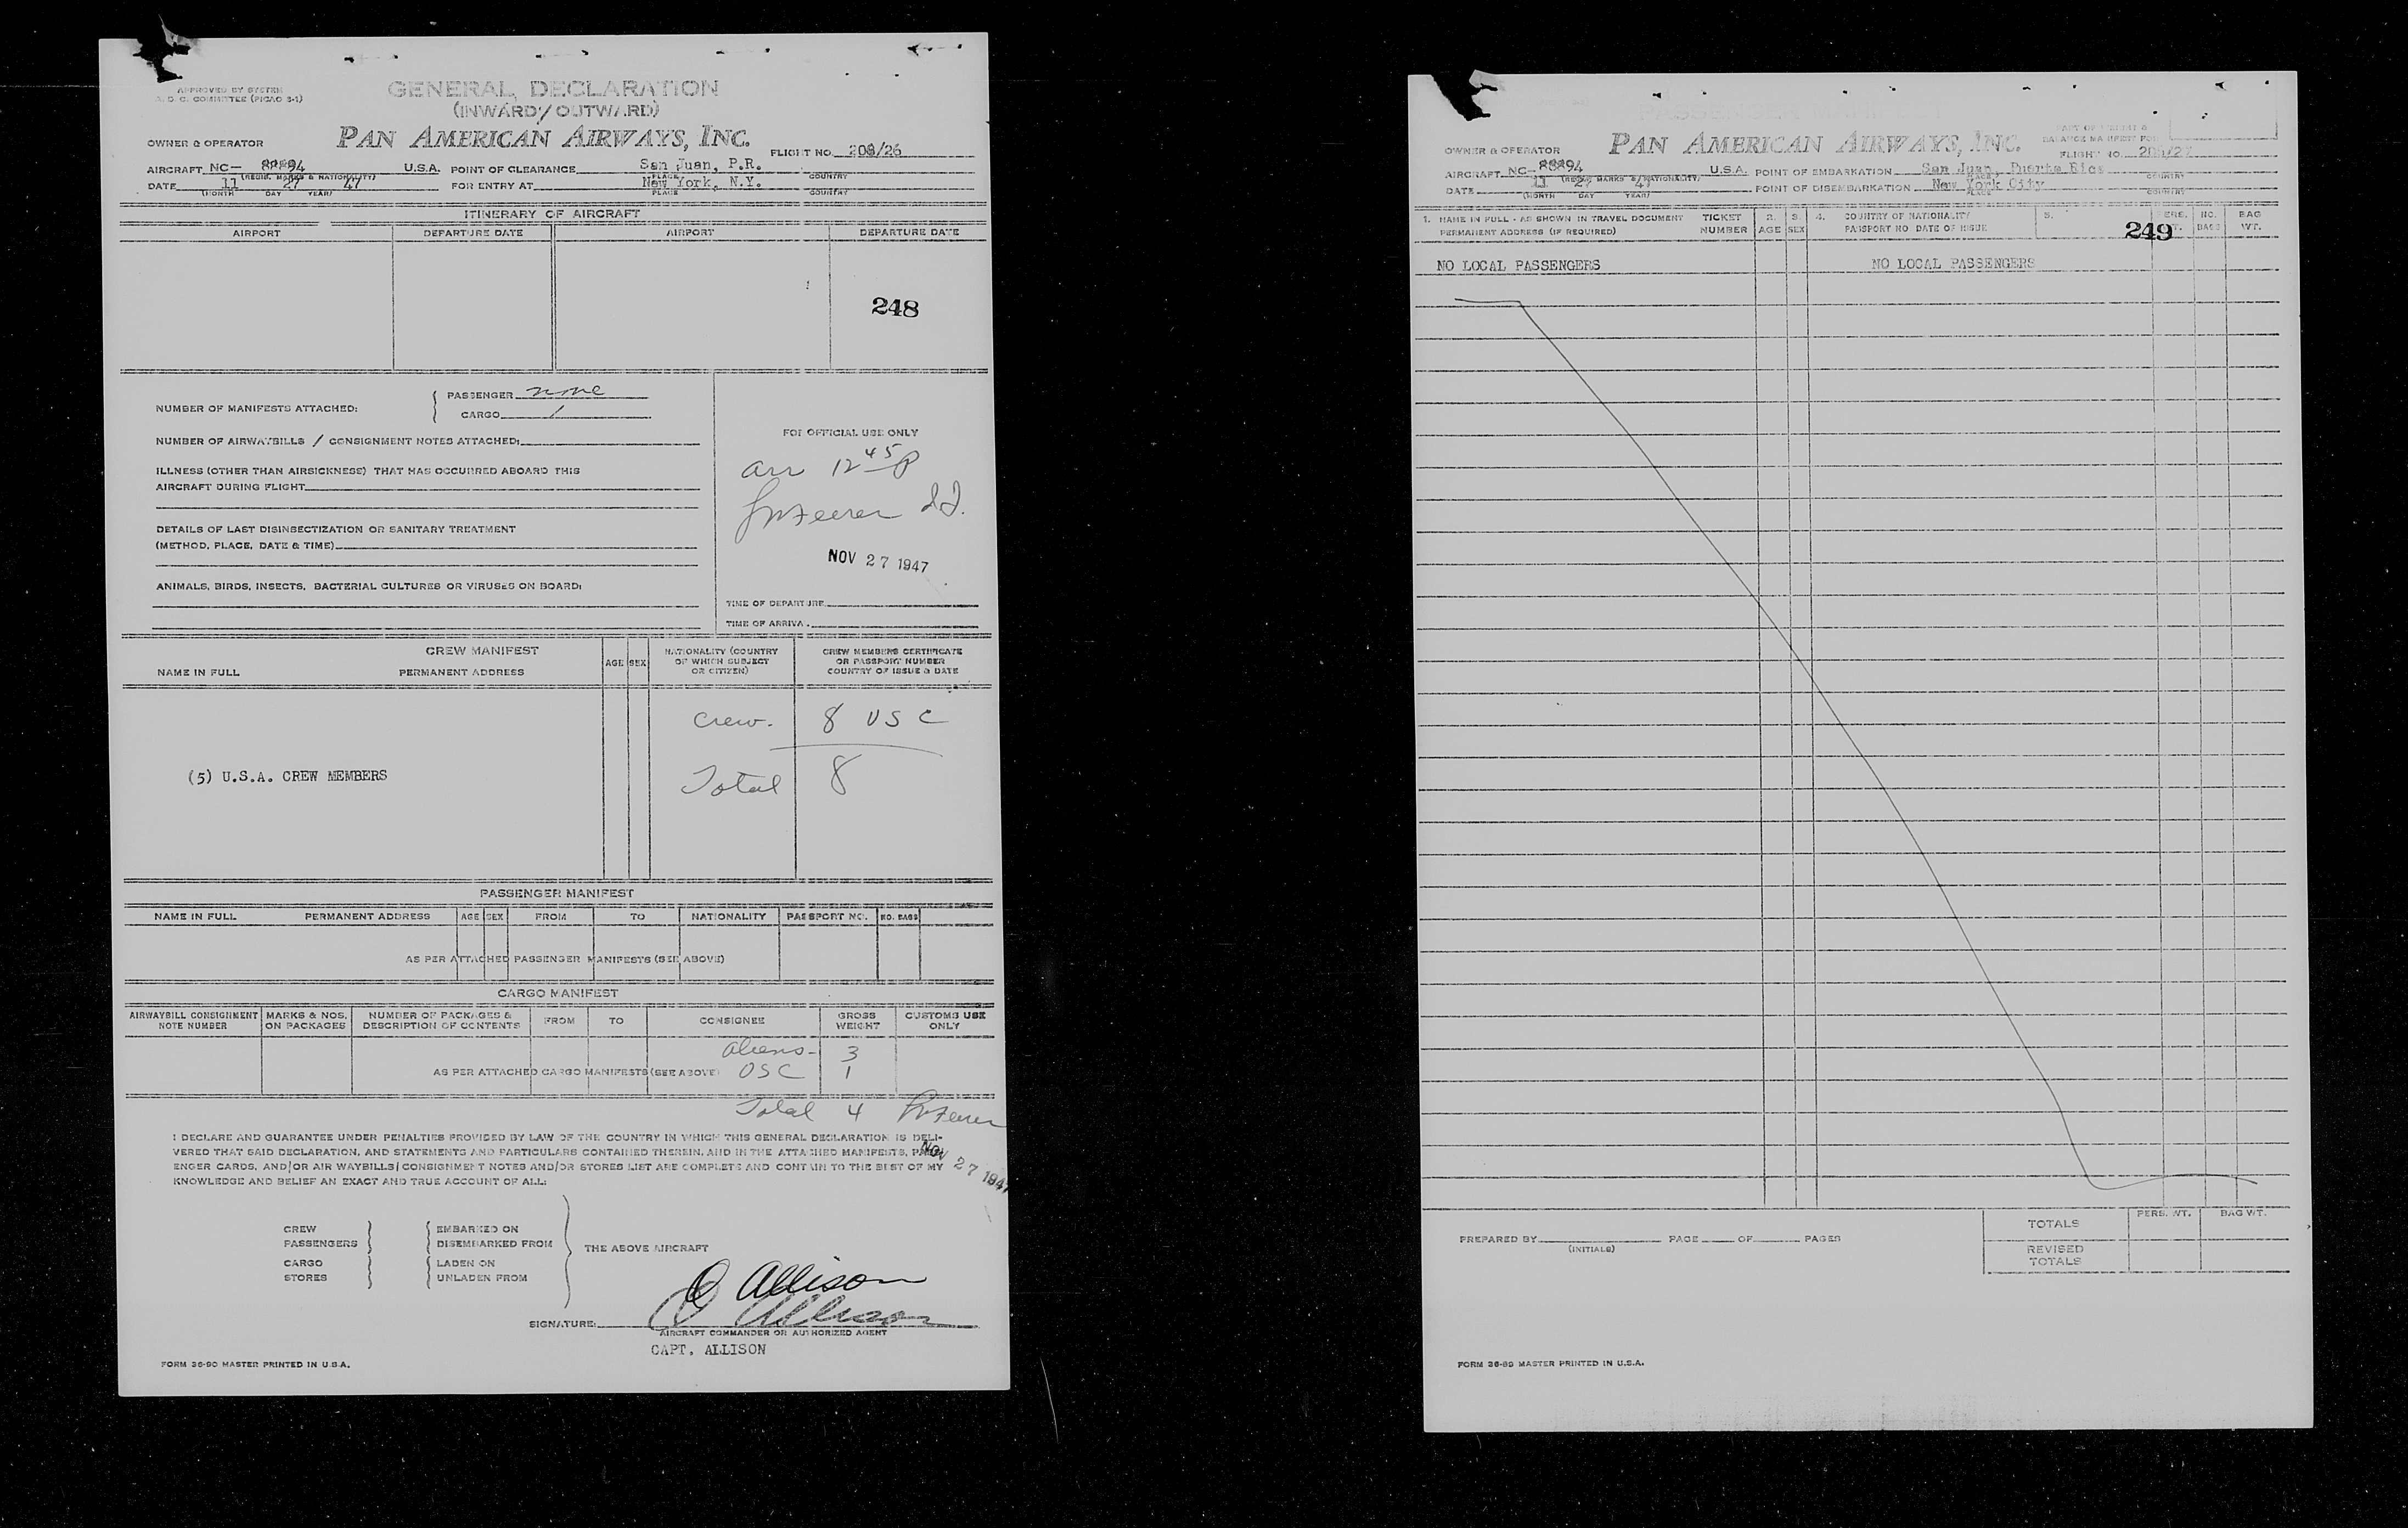 APPROVED BY SYSTEM
A. D. C. COMMITTEE (PICAO 3-1)
GENERAL DECLARATION
(INWARD/OUTWARD)
OWNER & OPERATOR PAN AMERICAN AIRWAYS, INC. FLIGHT NO. 208/26
AIRCRAFT NC- 88894 U.S.A. POINT OF CLEARANCE San Juan, P.R.
(REGIS. MARKS & NATIONALITY) PLACE COUNTRY
DATE 11 27 47 FOR ENTRY AT New York, N.Y.
(MONTH DAY YEAR) PLACE COUNTRY
ITINERARY OF AIRCRAFT
AIRPORT DEPARTURE DATE AIRPORT DEPARTURE DATE
248
NUMBER OF MANIFESTS ATTACHED: PASSENGER none
CARGO 1
NUMBER OF AIRWAYBILLS / CONSIGNMENT NOTES ATTACHED:
ILLNESS (OTHER THAN AIRSICKNESS) THAT HAS OCCURRED ABOARD THIS
AIRCRAFT DURING FLIGHT
DETAILS OF LAST DISINSECTIZATION OR SANITARY TREATMENT
(METHOD, PLACE, DATE & TIME)
ANIMALS, BIRDS, INSECTS, BACTERIAL CULTURES OR VIRUSES ON BOARD:
FOR OFFICIAL USE ONLY
arr 12 45 P
NOV 27 1947
TIME OF DEPARTURE
TIME OF ARRIVAL
CREW MANIFEST
NAME IN FULL PERMANENT ADDRESS AGE SEX NATIONALITY (COUNTRY OF WHICH SUBJECT OR CITIZEN) CREW MEMBERS CERTIFICATE OR PASSPORT NUMBER COUNTRY OF ISSUE & DATE
crew. 8 USC
(5) U.S.A. CREW MEMBERS
Total 8
PASSENGER MANIFEST
NAME IN FULL PERMANENT ADDRESS AGE SEX FROM TO NATIONALITY PASSPORT NO. NO. BAGS
AS PER ATTACHED PASSENGER MANIFESTS (SEE ABOVE)
CARGO MANIFEST
AIRWAYBILL CONSIGNMENT NOTE NUMBER MARKS & NOS. ON PACKAGES NUMBER OF PACKAGES & DESCRIPTION OF CONTENTS FROM TO CONSIGNEE GROSS WEIGHT CUSTOMS USE ONLY
aliens- 3
AS PER ATTACHED CARGO MANIFESTS (SEE ABOVE) USC 1
Total 4
I DECLARE AND GUARANTEE UNDER PENALTIES PROVIDED BY LAW OF THE COUNTRY IN WHICH THIS GENERAL DECLARATION IS DELI-
VERED THAT SAID DECLARATION, AND STATEMENTS AND PARTICULARS CONTAINED THEREIN, AND IN THE ATTACHED MANIFESTS,
ENGER CARDS, AND/OR AIR WAYBILLS/CONSIGNMENT NOTES AND/OR STORES LIST ARE COMPLETE AND CONTAIN TO THE BEST OF MY
KNOWLEDGE AND BELIEF AN EXACT AND TRUE ACCOUNT OF ALL:
NOV 27 1947
CREW EMBARKED ON
PASSENGERS DISEMBARKED FROM THE ABOVE AIRCRAFT
CARGO LADEN ON
STORES UNLADEN FROM
O Allison
SIGNATURE: O Allison
AIRCRAFT COMMANDER OR AUTHORIZED AGENT
CAPT. ALLISON
FORM 36-90 MASTER PRINTED IN U.S.A.
OWNER & OPERATOR PAN AMERICAN AIRWAYS, INC.
FLIGHT NO.
AIRCRAFT NC- 88894 U.S.A. POINT OF EMBARKATION San Juan, Puerto Rico
(REGIS. MARKS & NATIONALITY) PLACE COUNTRY
DATE 11 27 47 POINT OF DISEMBARKATION New York City
(MONTH DAY YEAR) PLACE COUNTRY
1. NAME IN FULL - AS SHOWN IN TRAVEL DOCUMENT PERMANENT ADDRESS (IF REQUIRED) TICKET NUMBER 2. AGE 3. SEX 4. COUNTRY OF NATIONALITY PASSPORT NO DATE OF ISSUE 5. PERS. WT. NO. BAGS BAG WT.
249
NO LOCAL PASSENGERS NO LOCAL PASSENGERS
TOTALS PERS. WT. BAG WT.
PREPARED BY PAGE OF PAGES
(INITIALS)
REVISED TOTALS
FORM 36-89 MASTER PRINTED IN U.S.A.